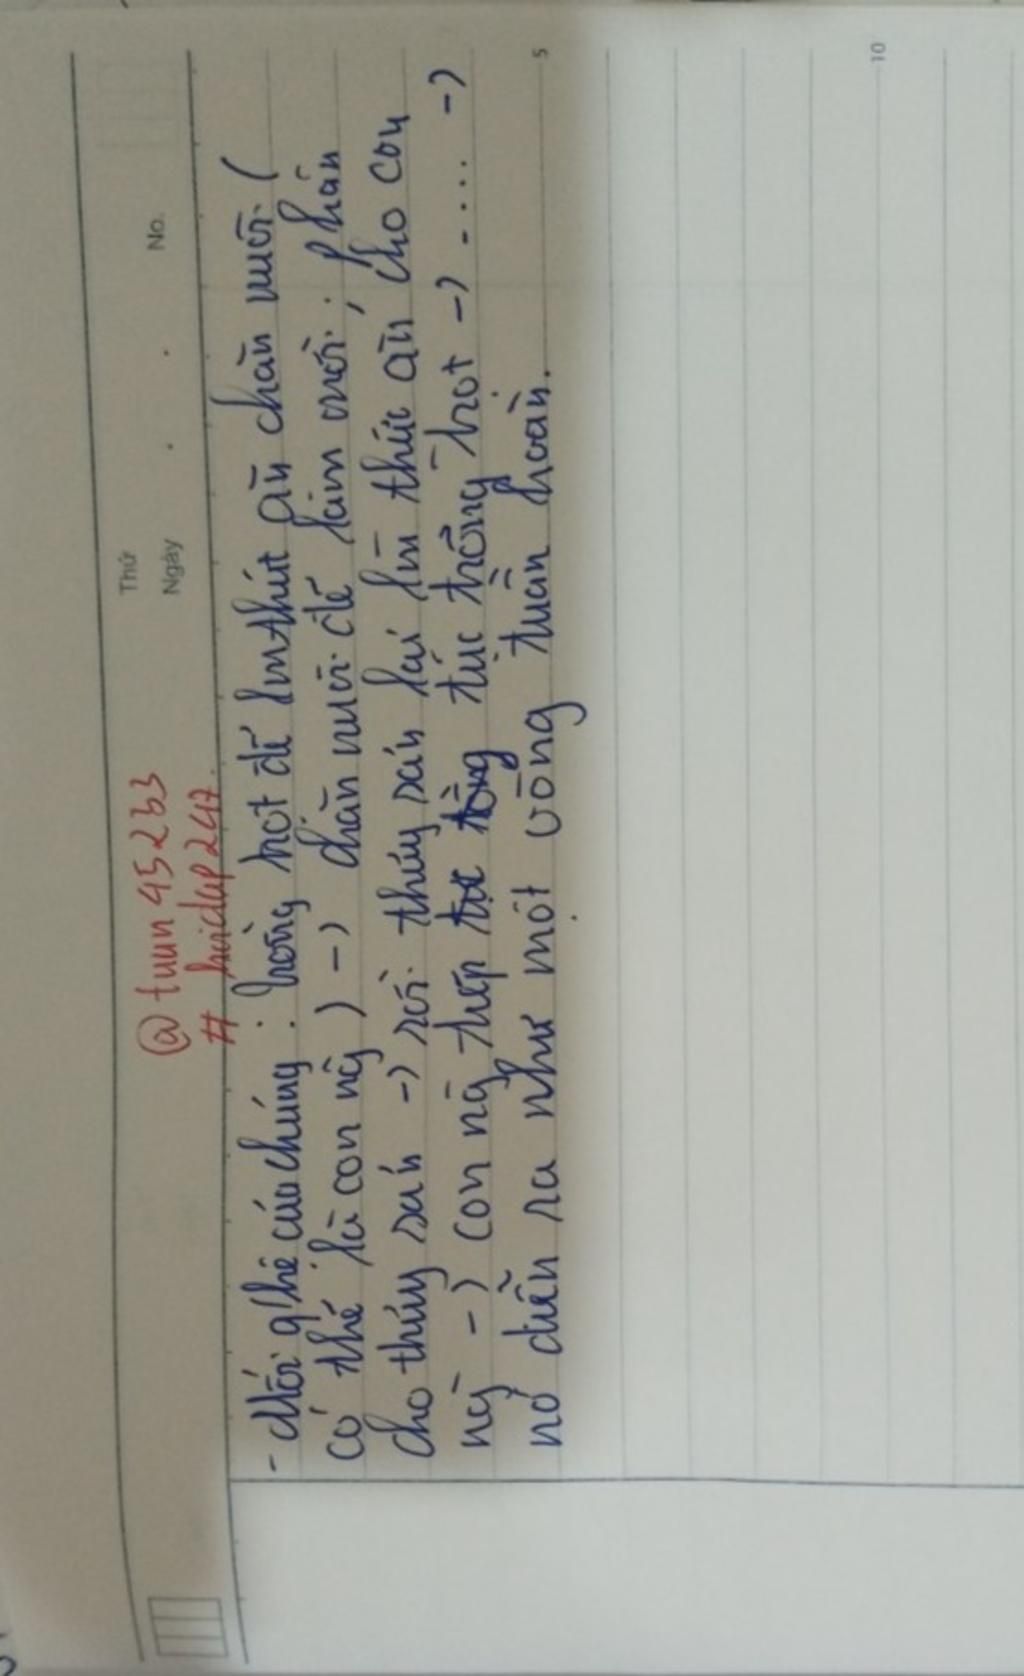 Thứ
Ngày No.
@ tuun45263
# hoidap247
- Mối qhệ của chúng : trồng trọt để làm thức ăn chăn nuôi. (
có thể là con ng ) -> chăn nuôi để làm mồi, phân
cho thủy sản -> rồi thủy sản lại làm thức ăn cho con
ng -> con ng tiếp tục trồng trọt -> ..... ->
nó diễn ra như một vòng tuần hoàn.
5
10